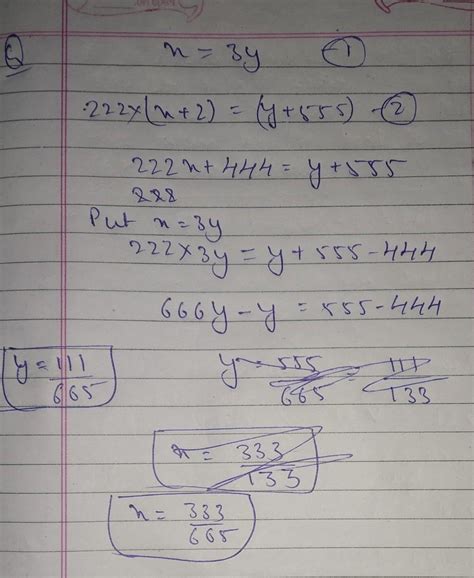 Q x = 3y —①
222×(x+2) = (y+555) –②
222x+444 = y+555
222
Put x=3y
222×3y = y+555-444
666y-y = 555-444
y = 111/665 y = 555/665 = 111/133
x = 333/133
x = 333/665